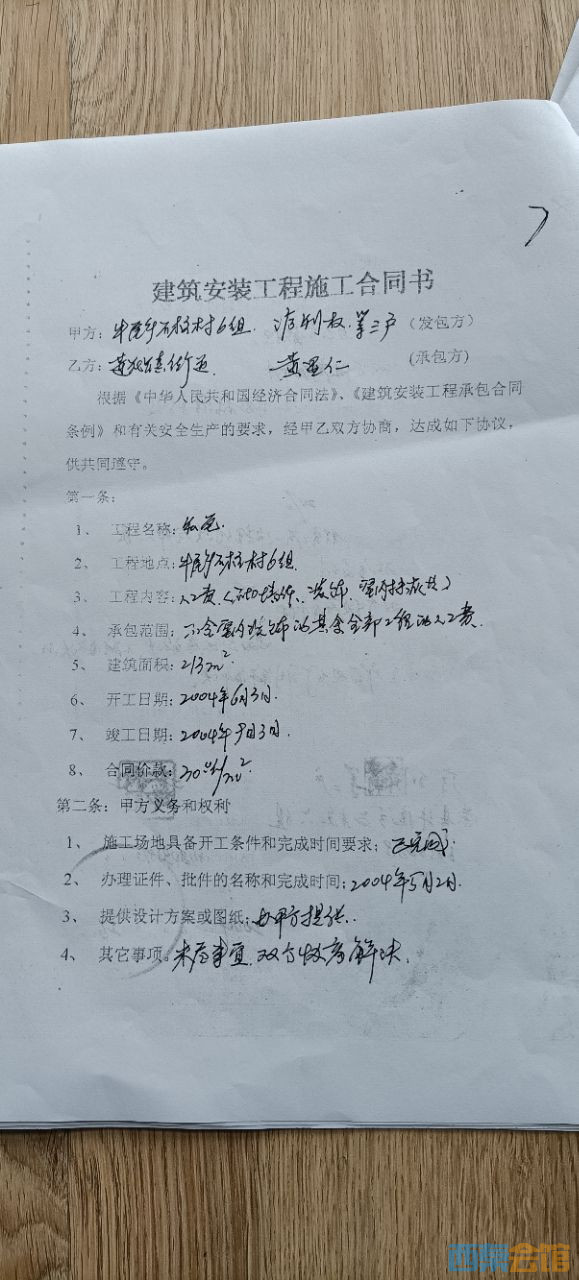 建筑安装工程施工合同书
甲方：石柱村6组 三户（发包方）
乙方：黄 仁（承包方）
根据《中华人民共和国经济合同法》、《建筑安装工程承包合同
条例》和有关安全生产的要求，经甲乙双方协商，达成如下协议，
供共同遵守。
第一条：
1、 工程名称：
2、 工程地点：石柱村6组
3、 工程内容：人工费（装饰、室内
4、 承包范围：不含室内装饰的其余全部工程的人工费.
5、 建筑面积：213m²
6、 开工日期：2004年6月3日.
7、 竣工日期：2004年 月3日.
8、 合同价款：/m²
第二条：甲方义务和权利
1、 施工场地具备开工条件和完成时间要求：已完成.
2、 办理证件、批件的名称和完成时间：2004年5月2日.
3、 提供设计方案或图纸：由甲方提供.
4、 其它事项：未尽事宜，双方协商解决.
西京会馆